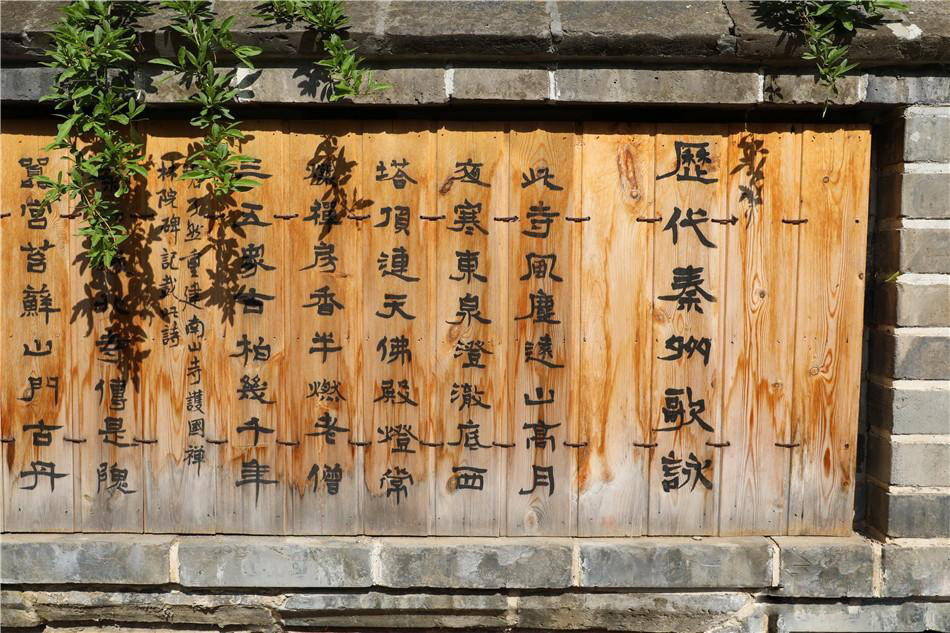 歷代秦州歌詠
此寺風塵遠山高月
夜寒東泉澄澈底西
塔頂連天佛殿燈常
續禪房香半燃老僧
三五衆古柏幾千年
然重建南山寺護國禪
林院碑記載詩
北寺傳是隗
囂宮苔蘚山門古丹